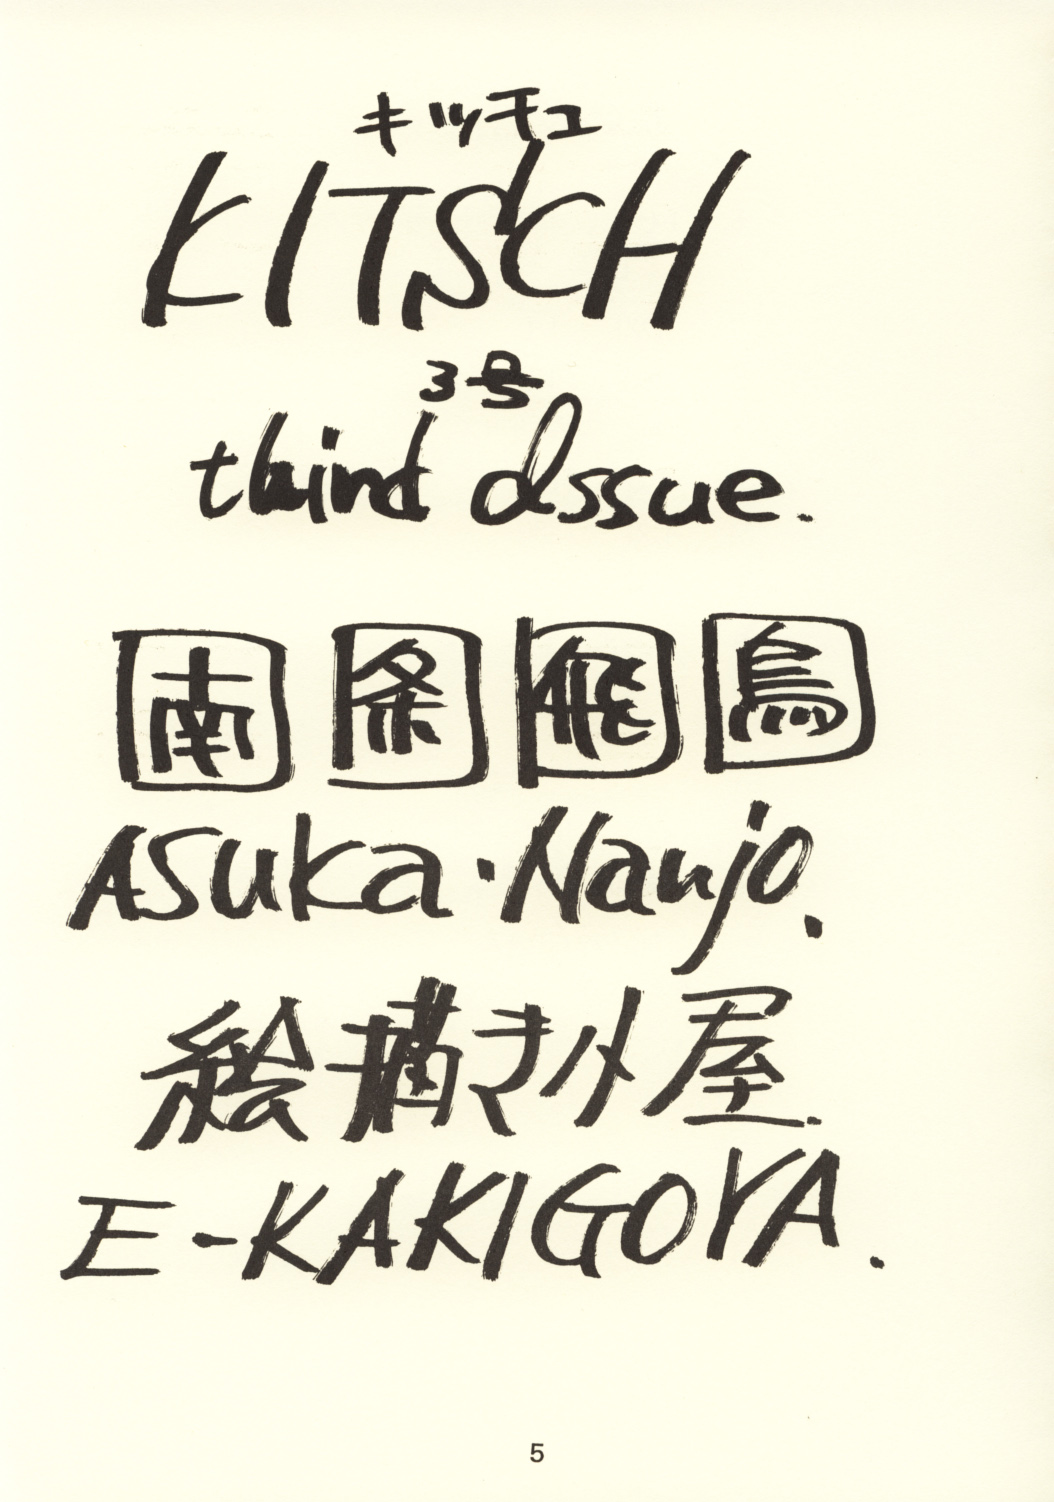 キッチュ
KITSCH
3号
third issue.
南条飛鳥
Asuka・Nanjo.
絵描き小屋.
E-KAKIGOYA.
5